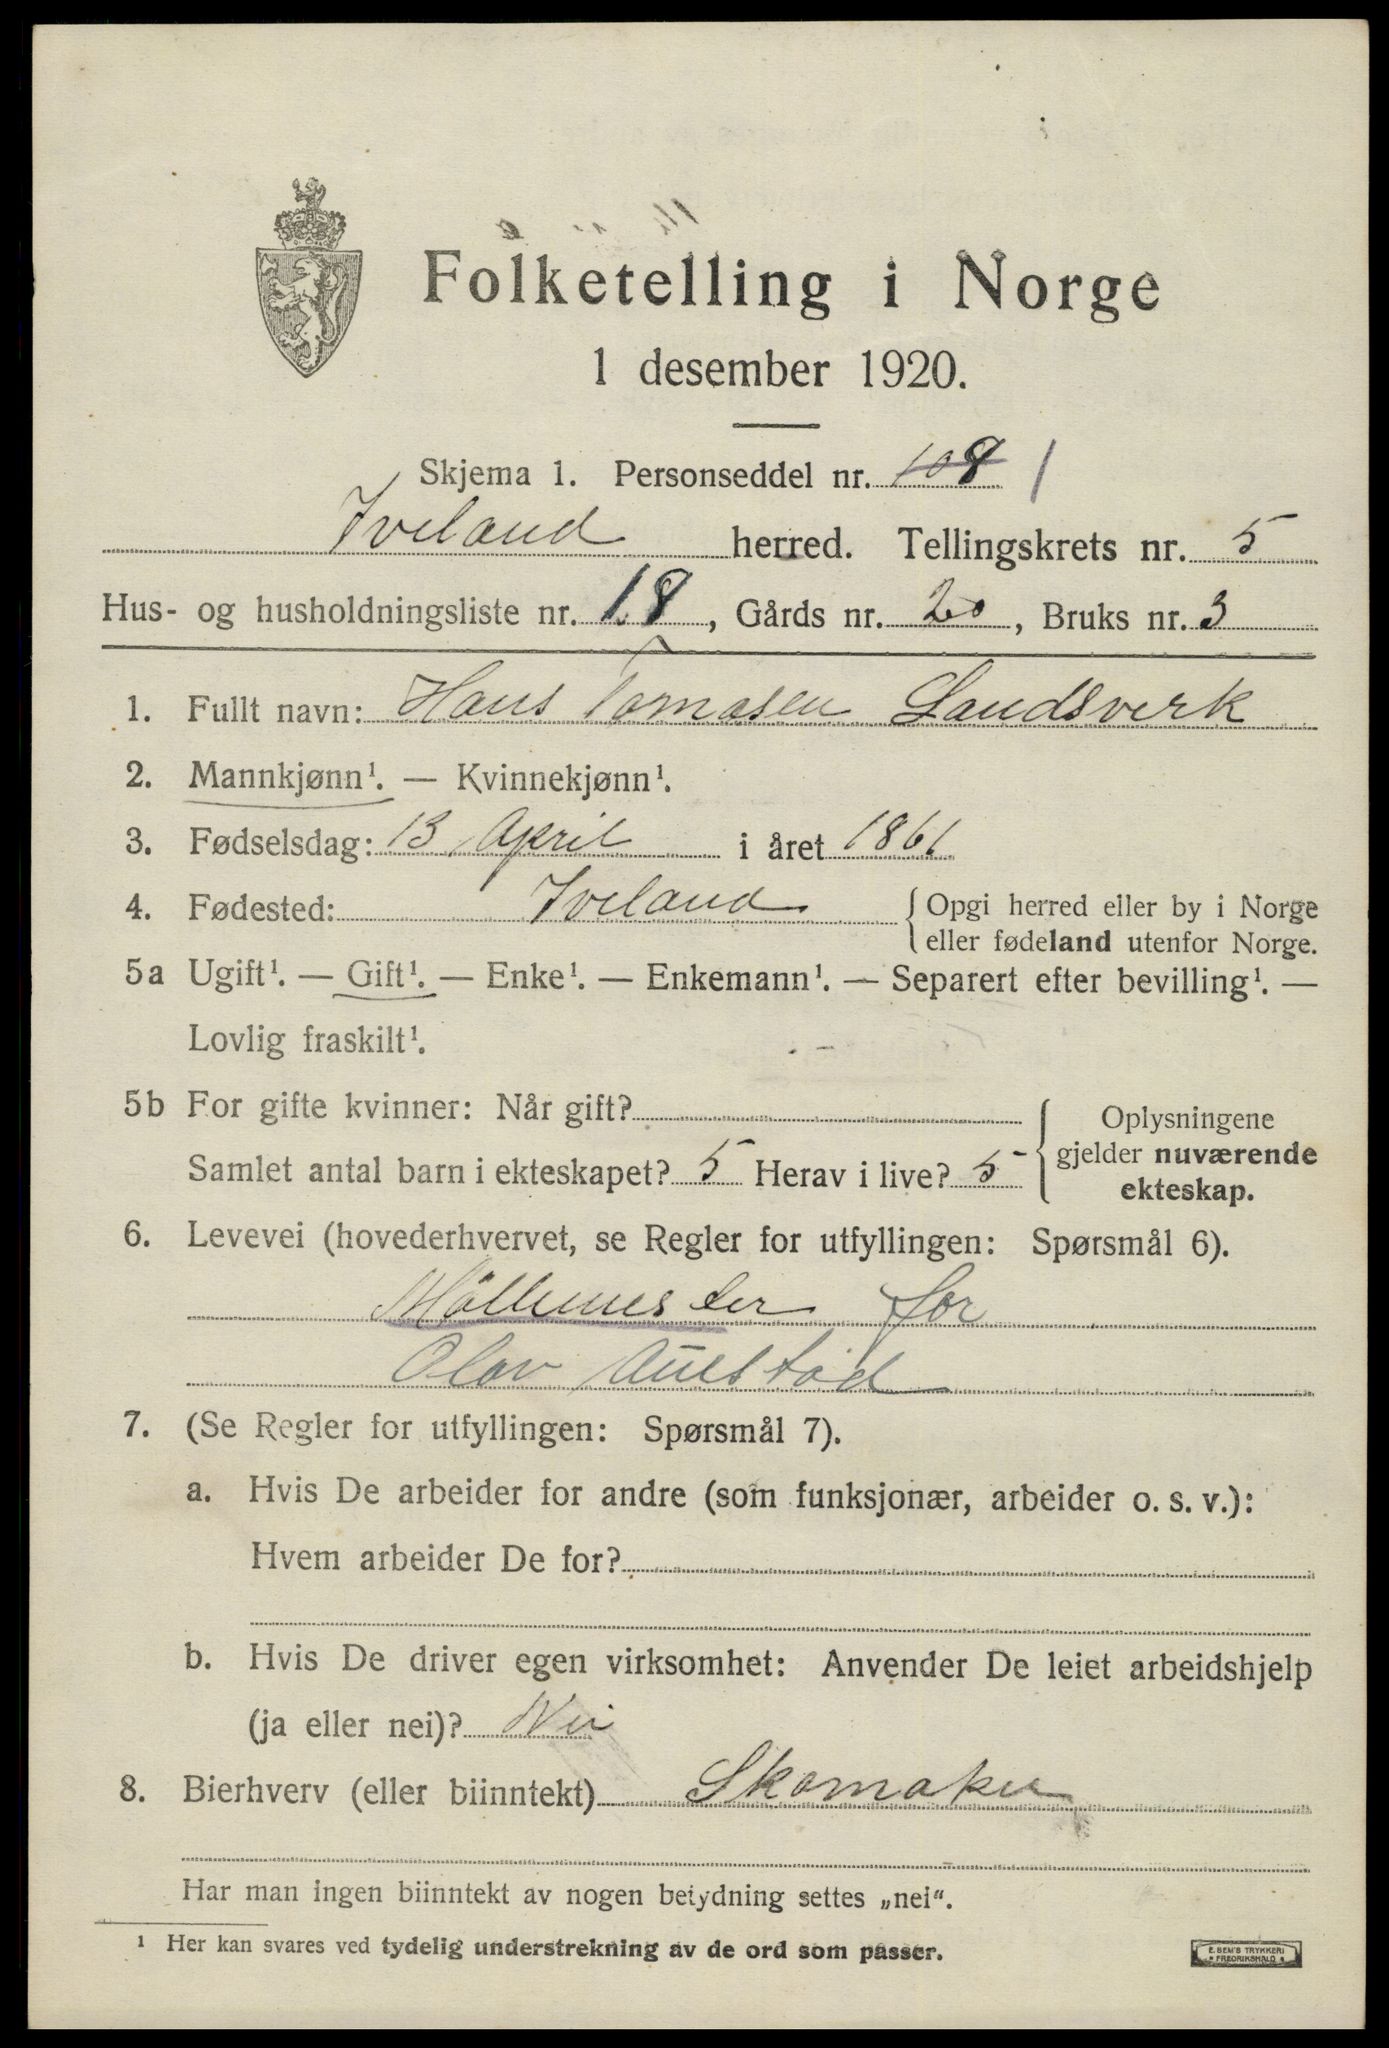 Folketelling i Norge
1 desember 1920.
Skjema 1. Personseddel nr. 108 1
Iveland herred. Tellingskrets nr. 5
Hus- og husholdningsliste nr. 18, Gårds nr. 20, Bruks nr. 3
1. Fullt navn: Hans Tomasen Landsverk
2. Mannkjønn¹. — Kvinnekjønn¹.
3. Fødselsdag: 13 April i året 1861
4. Fødested: Iveland { Opgi herred eller by i Norge
eller fødeland utenfor Norge.
5a Ugift¹. — Gift¹. — Enke¹. — Enkemann¹. — Separert efter bevilling¹. —
Lovlig fraskilt¹.
5b For gifte kvinner: Når gift?
Samlet antal barn i ekteskapet? 5 Herav i live? 5
{ Oplysningene
gjelder nuværende
ekteskap.
6. Levevei (hovederhvervet, se Regler for utfyllingen: Spørsmål 6).
Möllemester for
Olav
7. (Se Regler for utfyllingen: Spørsmål 7).
a. Hvis De arbeider for andre (som funksjonær, arbeider o. s. v.):
Hvem arbeider De for?
b. Hvis De driver egen virksomhet: Anvender De leiet arbeidshjelp
(ja eller nei)? Nei
8. Bierhverv (eller biinntekt) Skomaker
Har man ingen biinntekt av nogen betydning settes „nei“.
¹ Her kan svares ved tydelig understrekning av de ord som passer.
E. SEM'S TRYKKERI
• FREDRIKSHALD •